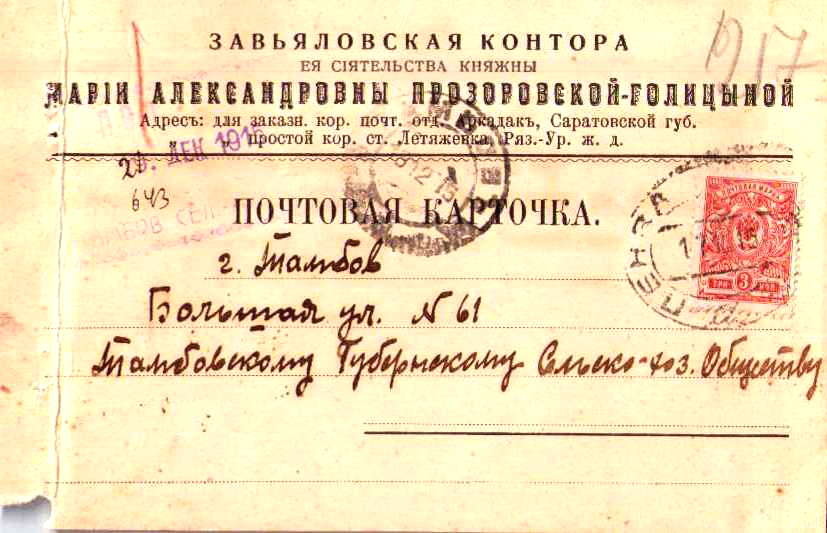 ЗАВЬЯЛОВСКАЯ КОНТОРА
ЕЯ СІЯТЕЛЬСТВА КНЯЖНЫ
МАРІИ АЛЕКСАНДРОВНЫ ПРОЗОРОВСКОЙ-ГОЛИЦЫНОЙ
Адресъ: для заказн. кор. почт. отд. Аркадакъ, Саратовской губ.
простой кор. ст. Летяжевка, Ряз.-Ур. ж. д.
ДЕК 1915
643
ПОЧТОВАЯ КАРТОЧКА.
г. Тамбов
Большая ул. N 61
Тамбовскому Губернскому Сельско-хоз. Обществу
3
917